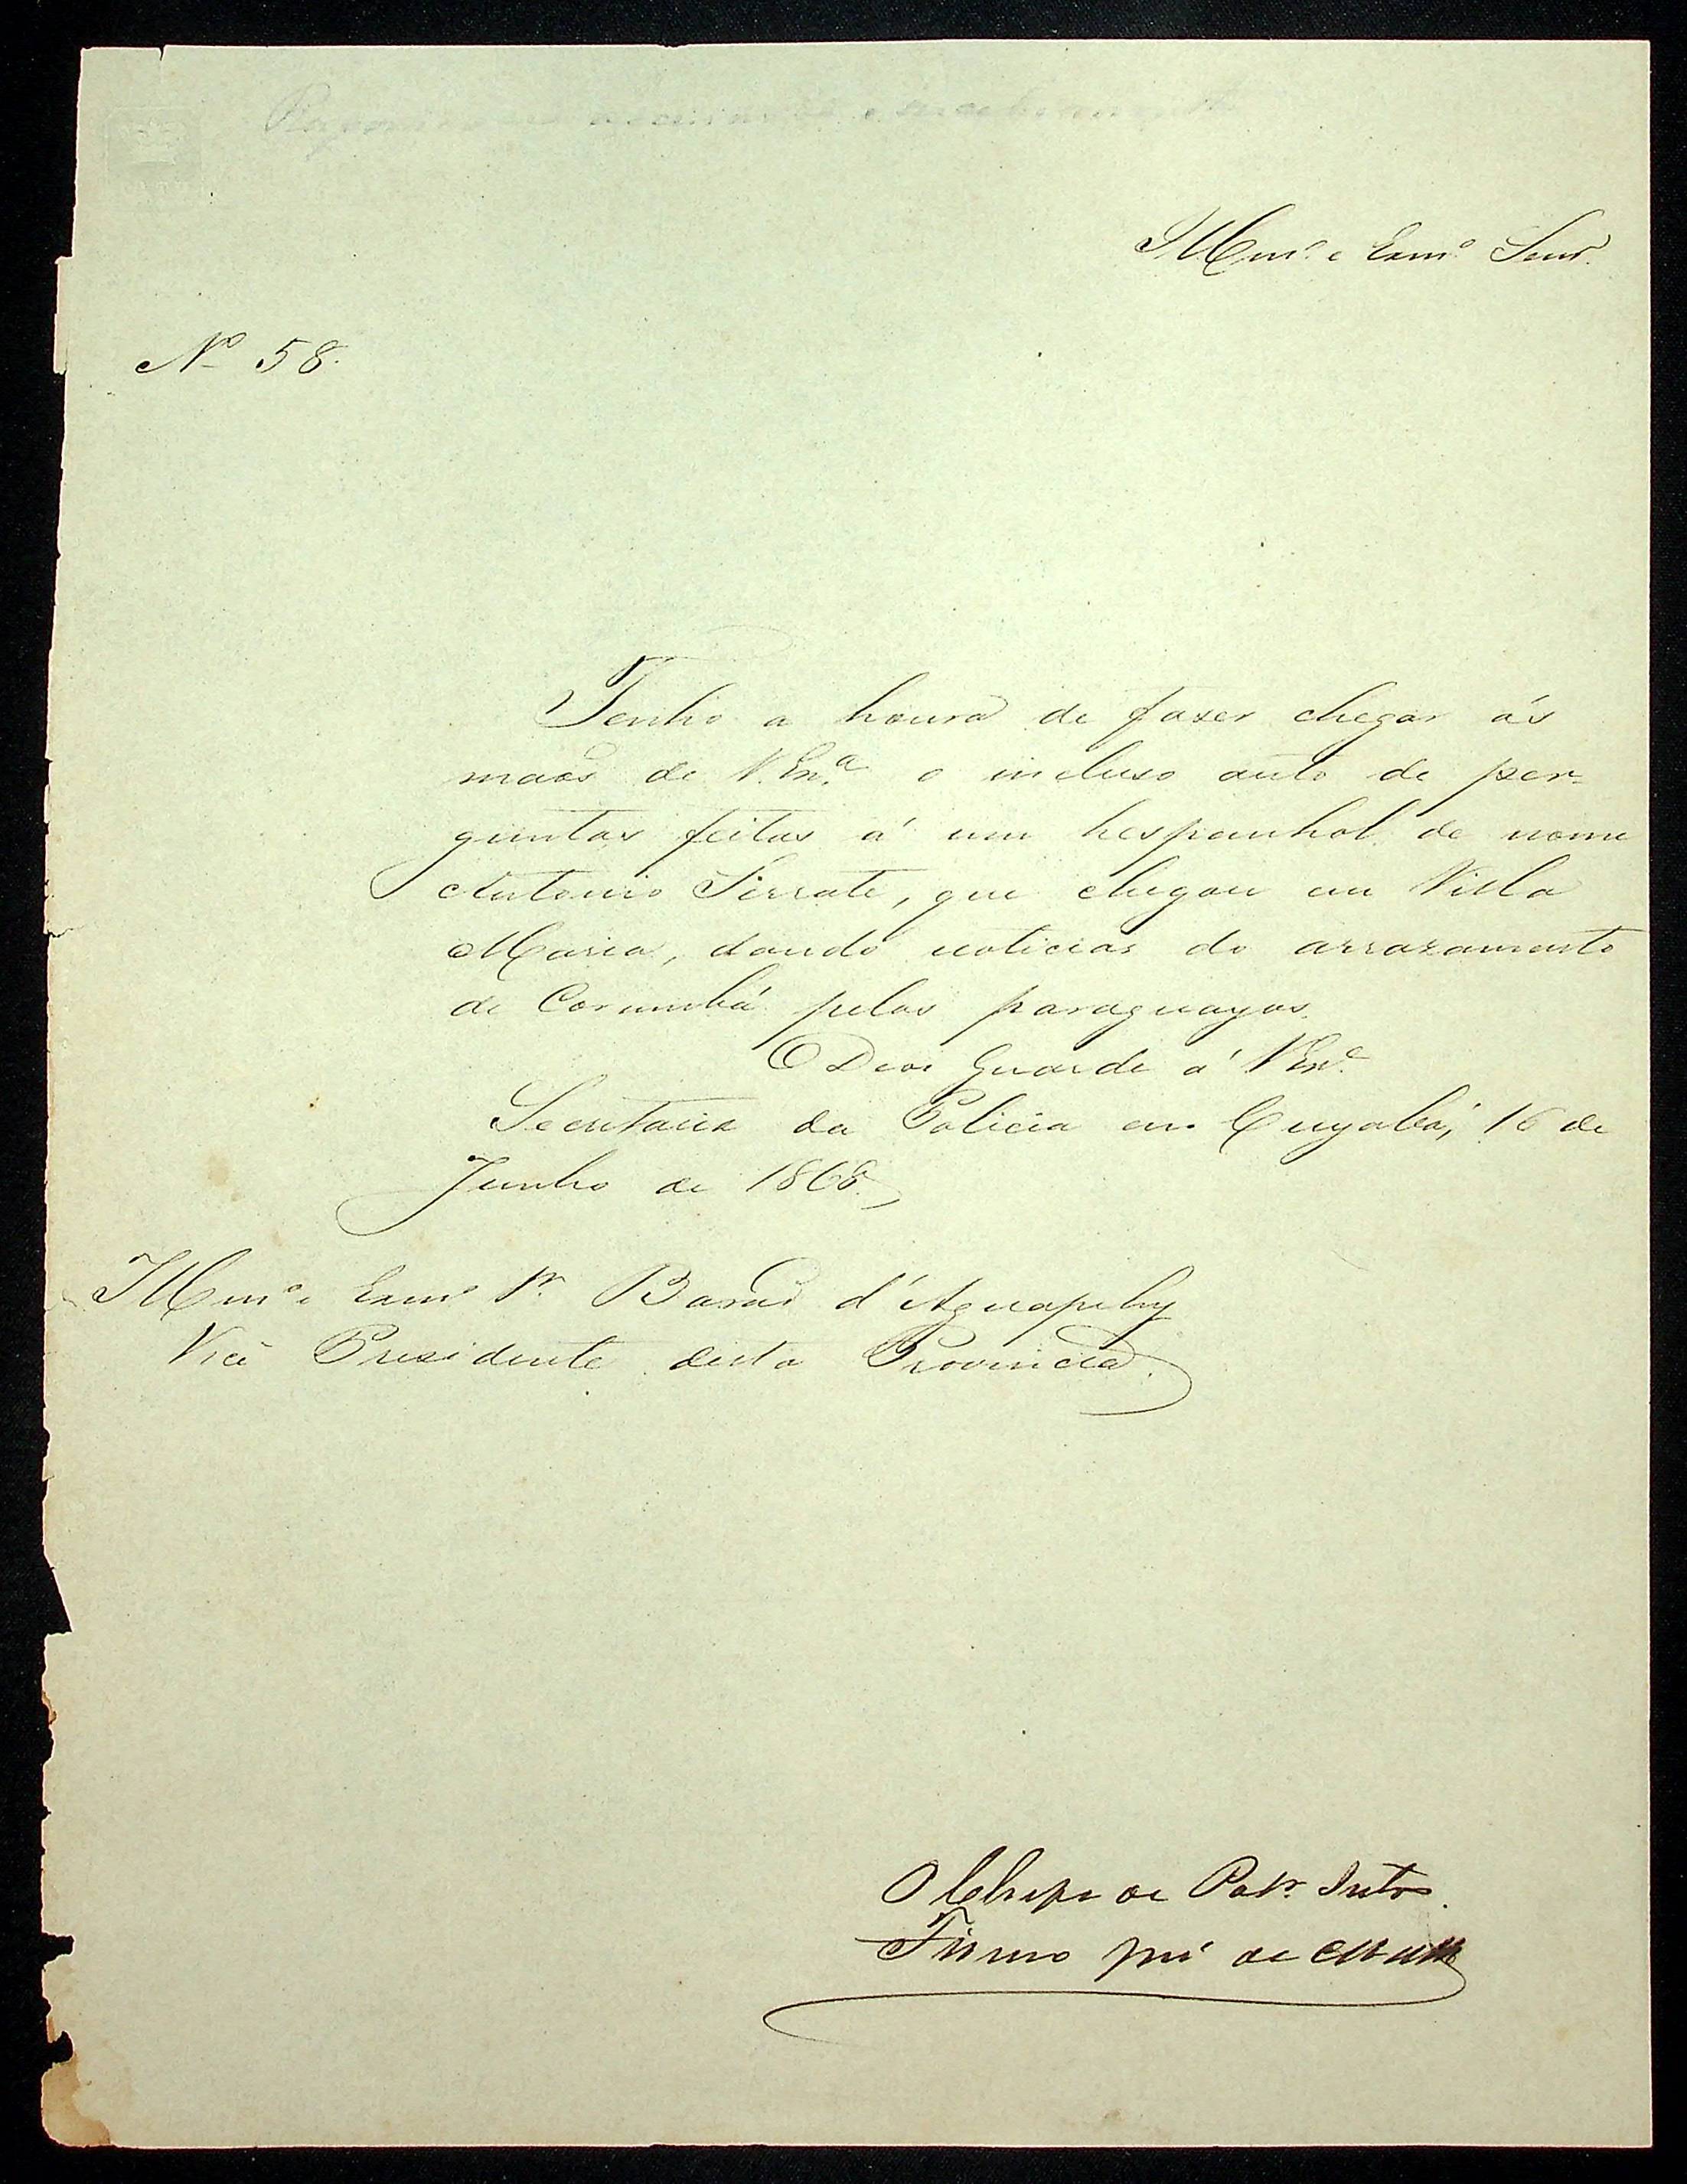 Illmo. e Exmo. Senr.
No 58.
Tenho a honra de fazer chegar ás
maõs de V. Exa. o incluso auto de per=
guntas feitas á um hespanhol de nome
Antonio Serrate, que chegou em Villa
Maria, dando noticias do arrazamento
de Corumbá pelos paraguayos.
Deos Guarde á V Exa.
Secretaria da Policia em Cuyabá, 16 de
Junho de 1868.
Illmo. e Exmo. Sr. Baraõ d'Aguapehy
Vice Presidente desta Provincia.
O Chefe de Pola. Into.
Firmo José de Mattos